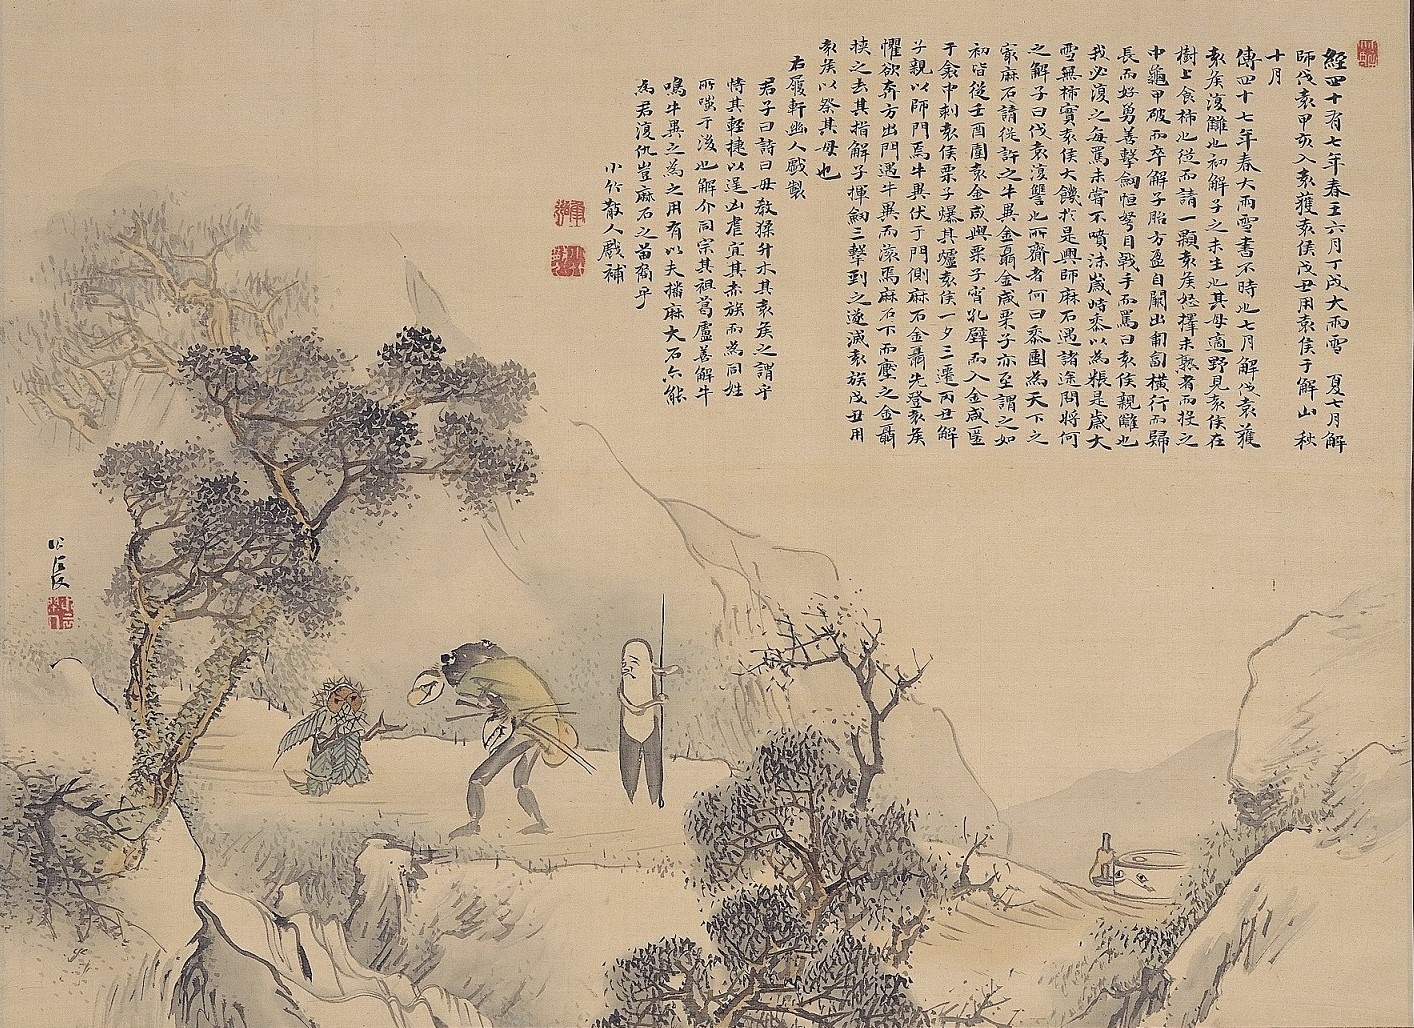 經四十有七年春王六月丁戌大雨雪 夏七月解
師伐猿甲亥入猿獲猿侯戊丑用猿侯于解山 秋
十月
傳四十七年春大雨雪書不時也七月解伐猿獲
猿侯復讎也初解子之未生也其母適野見猿侯在
樹上食柿也從而請一顆猿侯怒擇未熟者而投之
中龜甲破而卒解子胎方盈自闢出匍匐橫行而歸
長而好勇善擊劍恒弩目戟手而罵曰猿侯親讎也
我必復之每罵未嘗不噴沫歲時黍以為糗是歲大
雪無柿實猿侯大饑於是興師麻石遇諸途問將何
之解子曰伐猿復讐也所齎者何曰黍團為天下之
寡麻石請從許之牛異金聶金咸栗子亦至謂之如
初皆從壬酉圍猿金咸與栗子宵孔壁而入金咸匿
于衾中刺猿侯栗子爆其爐猿侯一夕三遷丙丑解
子親以師門焉牛異伏于門側麻石金聶先登猿侯
懼欲奔方出門遇牛異而滾焉麻石下而壓之金聶
挾之去其指解子揮劍三擊到之遂滅猿族戊丑用
猿侯以祭其母也
右履軒幽人戲製
君子曰詩曰毋教猱升木其猿侯之謂乎
恃其輕捷以逞凶虐宜其赤族而為同姓
所嗤于後也解介同宗其祖葛盧善解牛
鳴牛異之為之用有以夫擂麻大石亦能
為君復仇豈麻石之苗裔乎
小竹散人戲補
公長